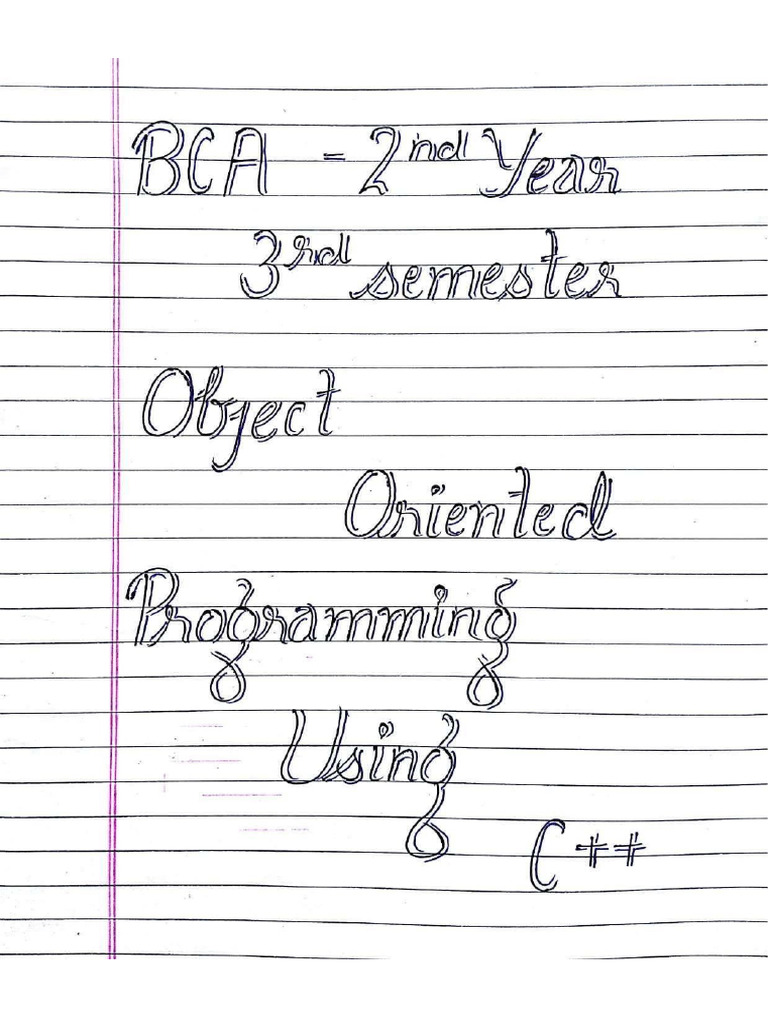 BCA - 2nd Year
3rd semester
Object
Oriented
Programming
Using
C++